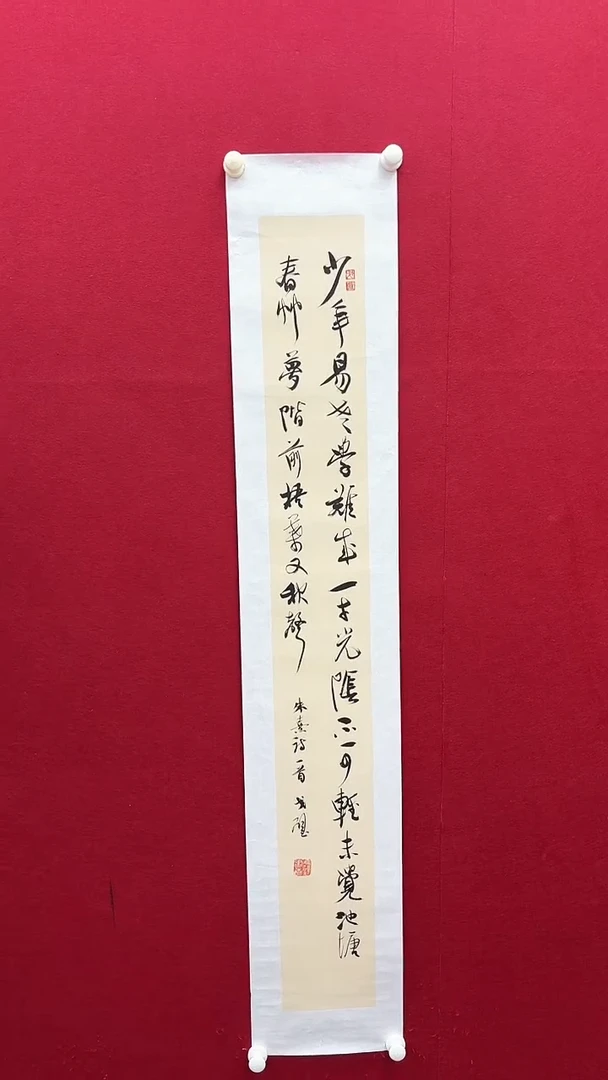 少年易老學難成一寸光陰不可輕未覺池塘
春艸夢階前梧葉又秋聲
朱熹詩一首